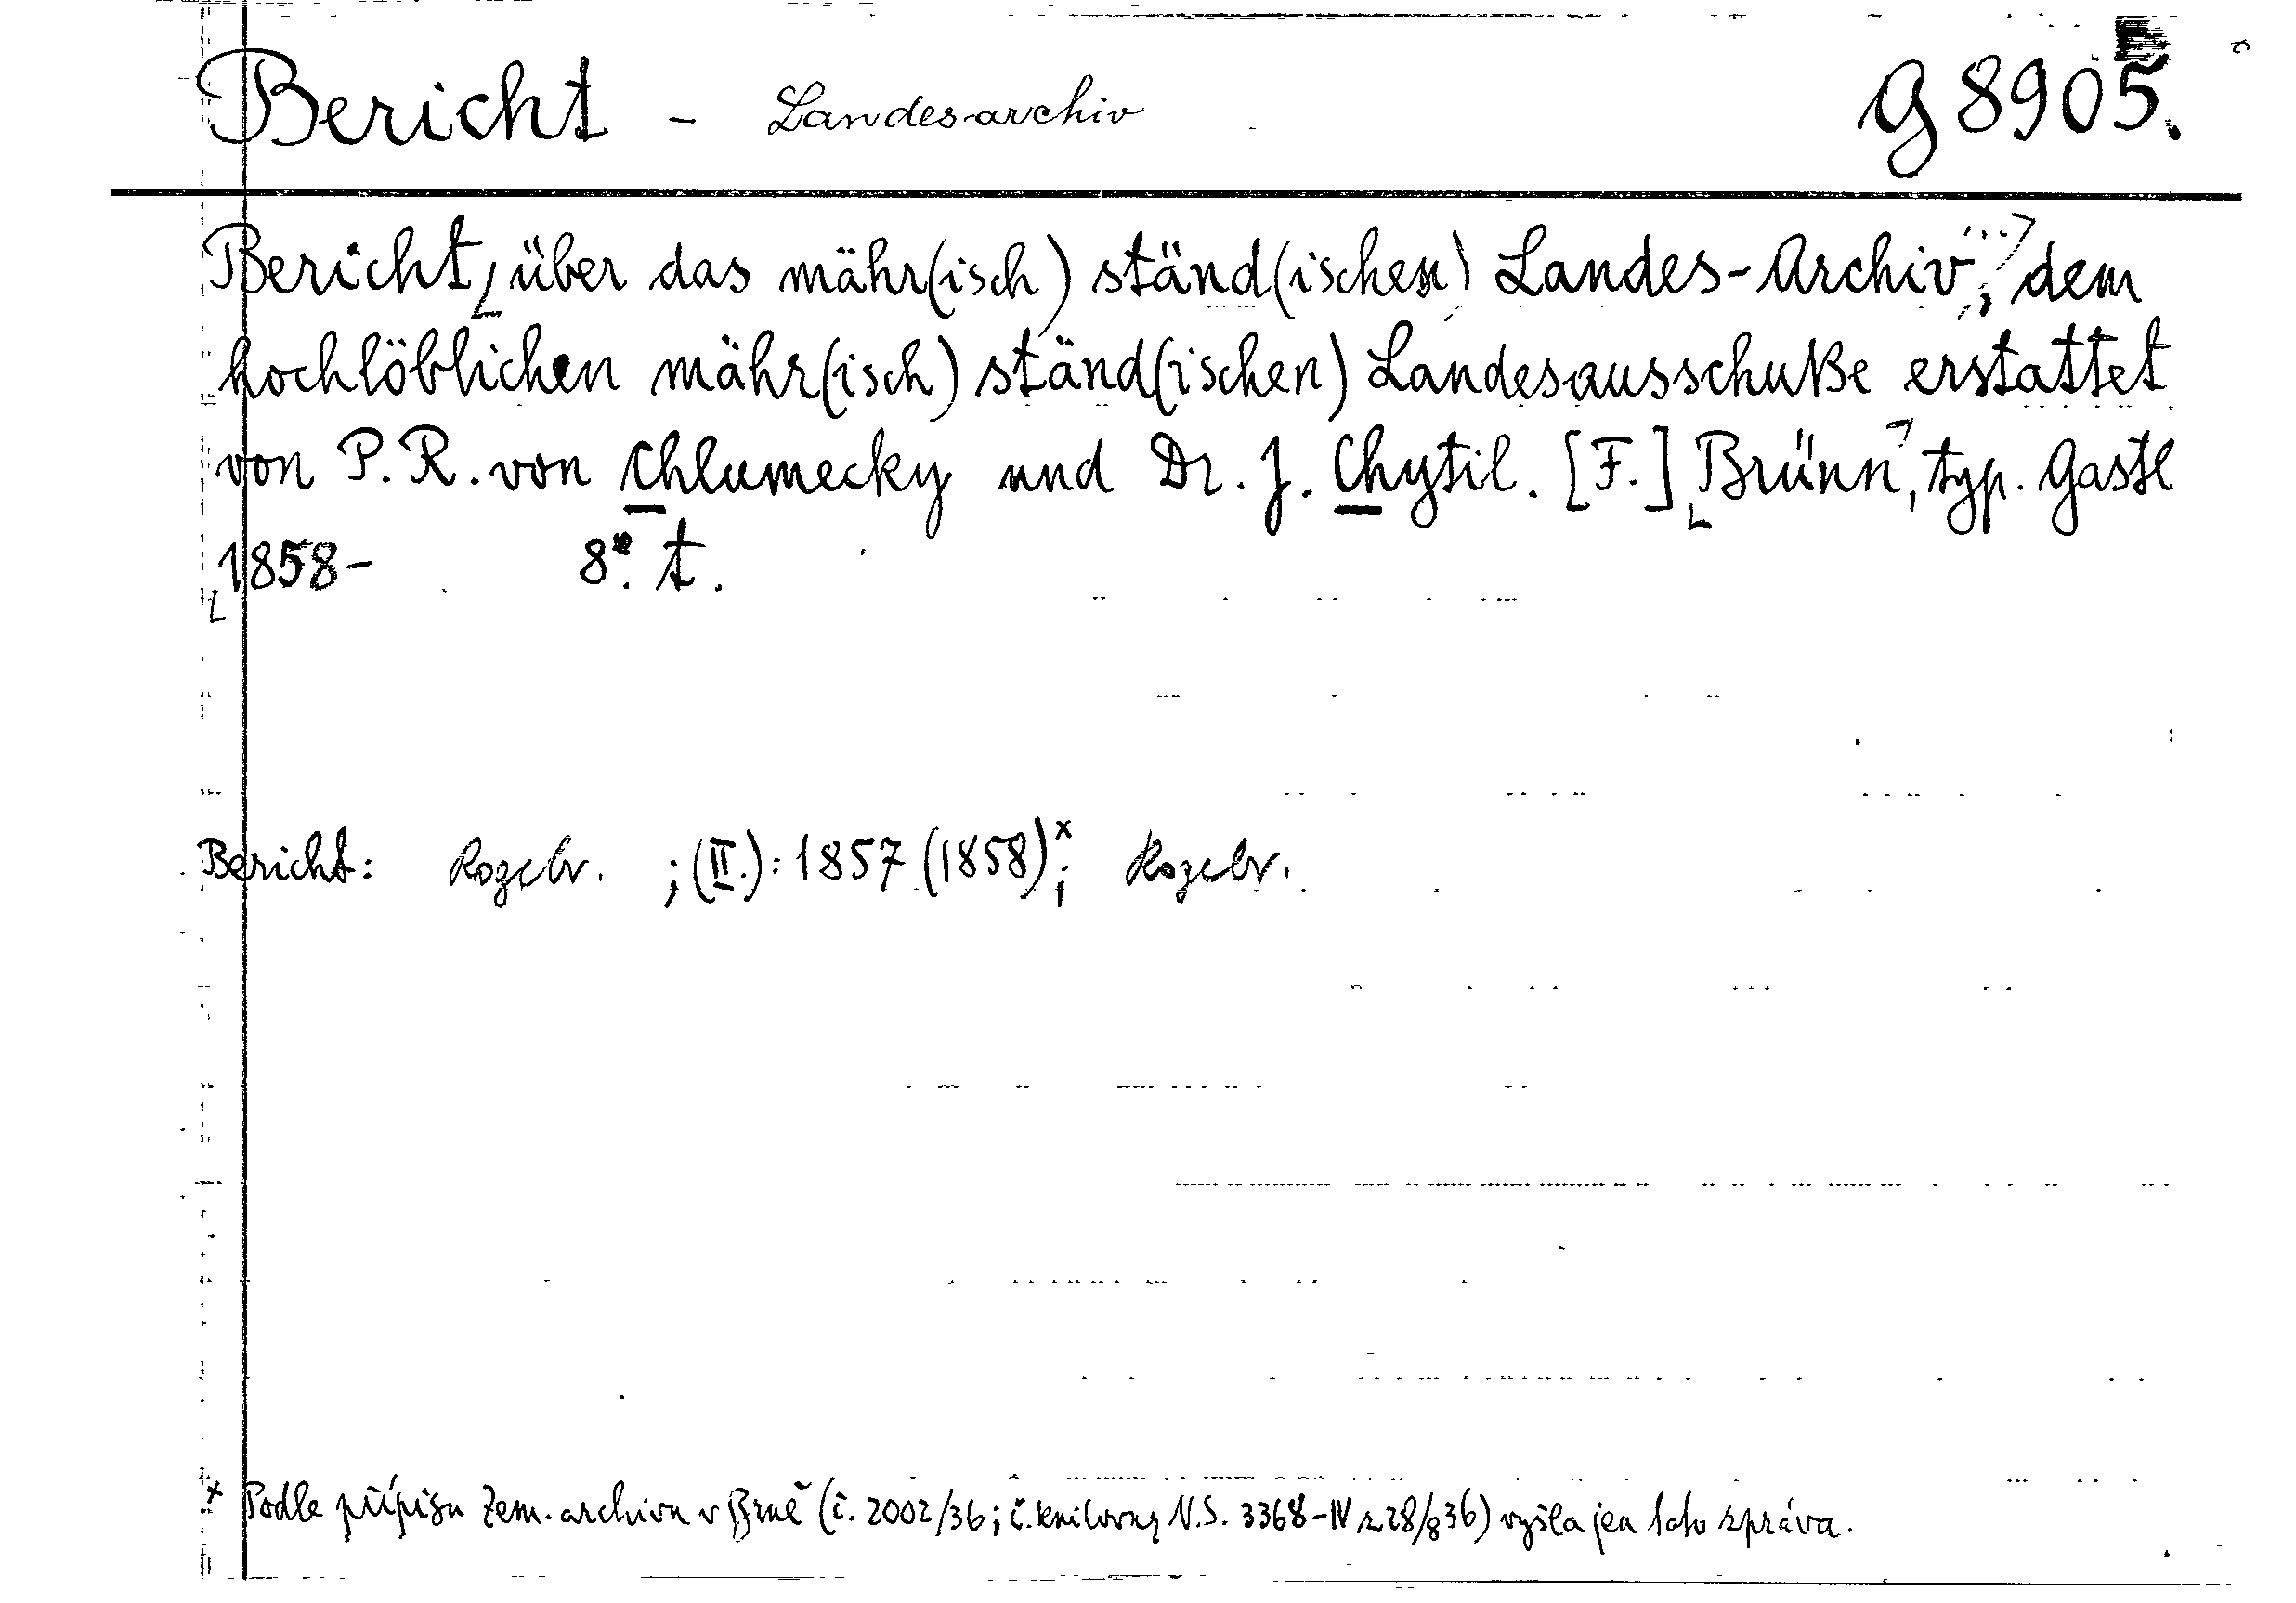 Bericht - Landesarchiv G 8905.
Bericht, über das mähr(isch) ständ(ischen) Landes-Archiv,"...; dem
hochlöblichen mähr(isch) ständ(ischen) Landesausschuße erstattet
von P. R. von Chlumecky und Dr. J. Chytil. [F.] Brünn, typ. Gastl
1858- 8°. t.
Bericht: Rozebr. ; (II.): 1857 (1858)x; Rozebr.
x Podle přípisu Zem. archivu v Brně (č. 2002/36; č. knihovny N.S. 3368-IV z 28/8 36) vyšla jen tato zpráva.